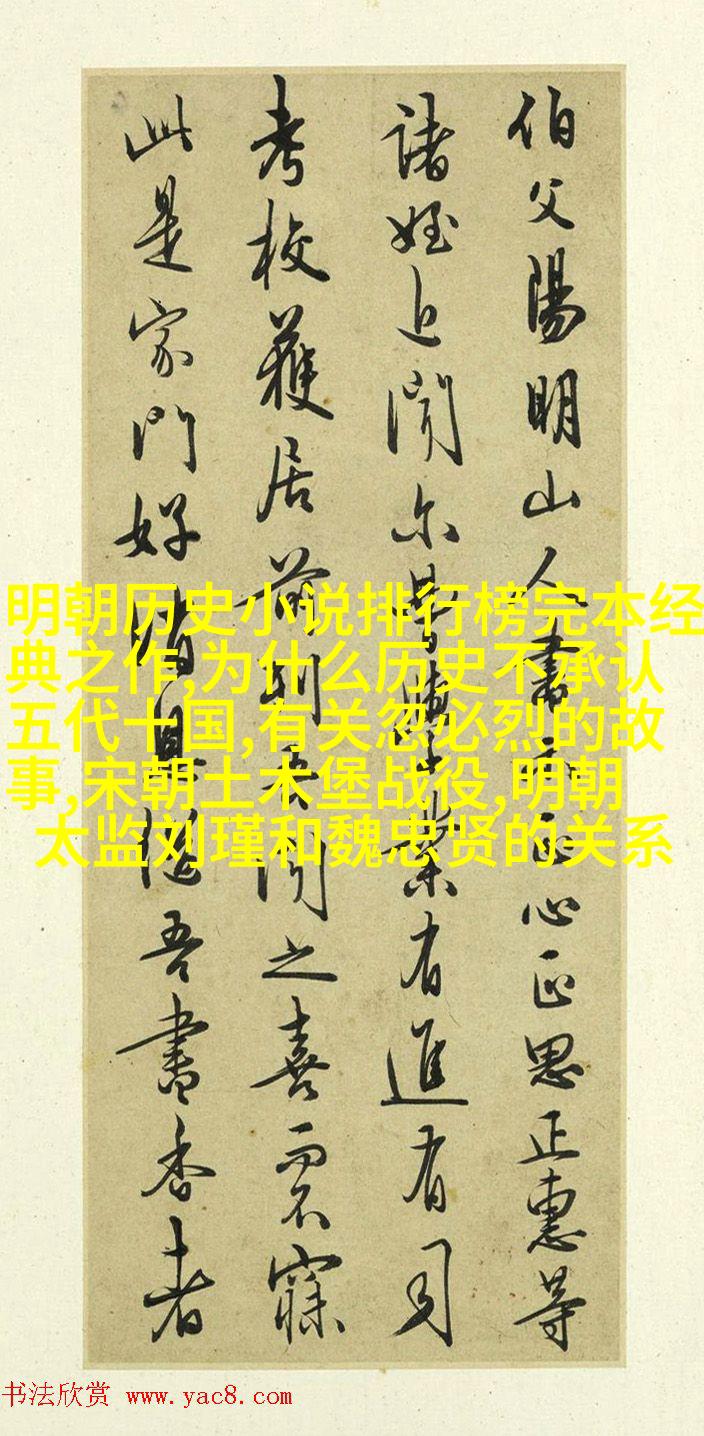 伯父陽明山人書示正心正思正惠等
諸姪近聞尔曹學業有進有司
考校獲居前列吾聞之喜而不寐
此是家門好消息繼吾書香者
明朝历史小说排行榜完本经
典之作,为什么历史不承认
五代十国,有关忽必烈的故
事,宋朝土木堡战役,明朝
太监刘瑾和魏忠贤的关系
书法欣赏 www.yac8.com